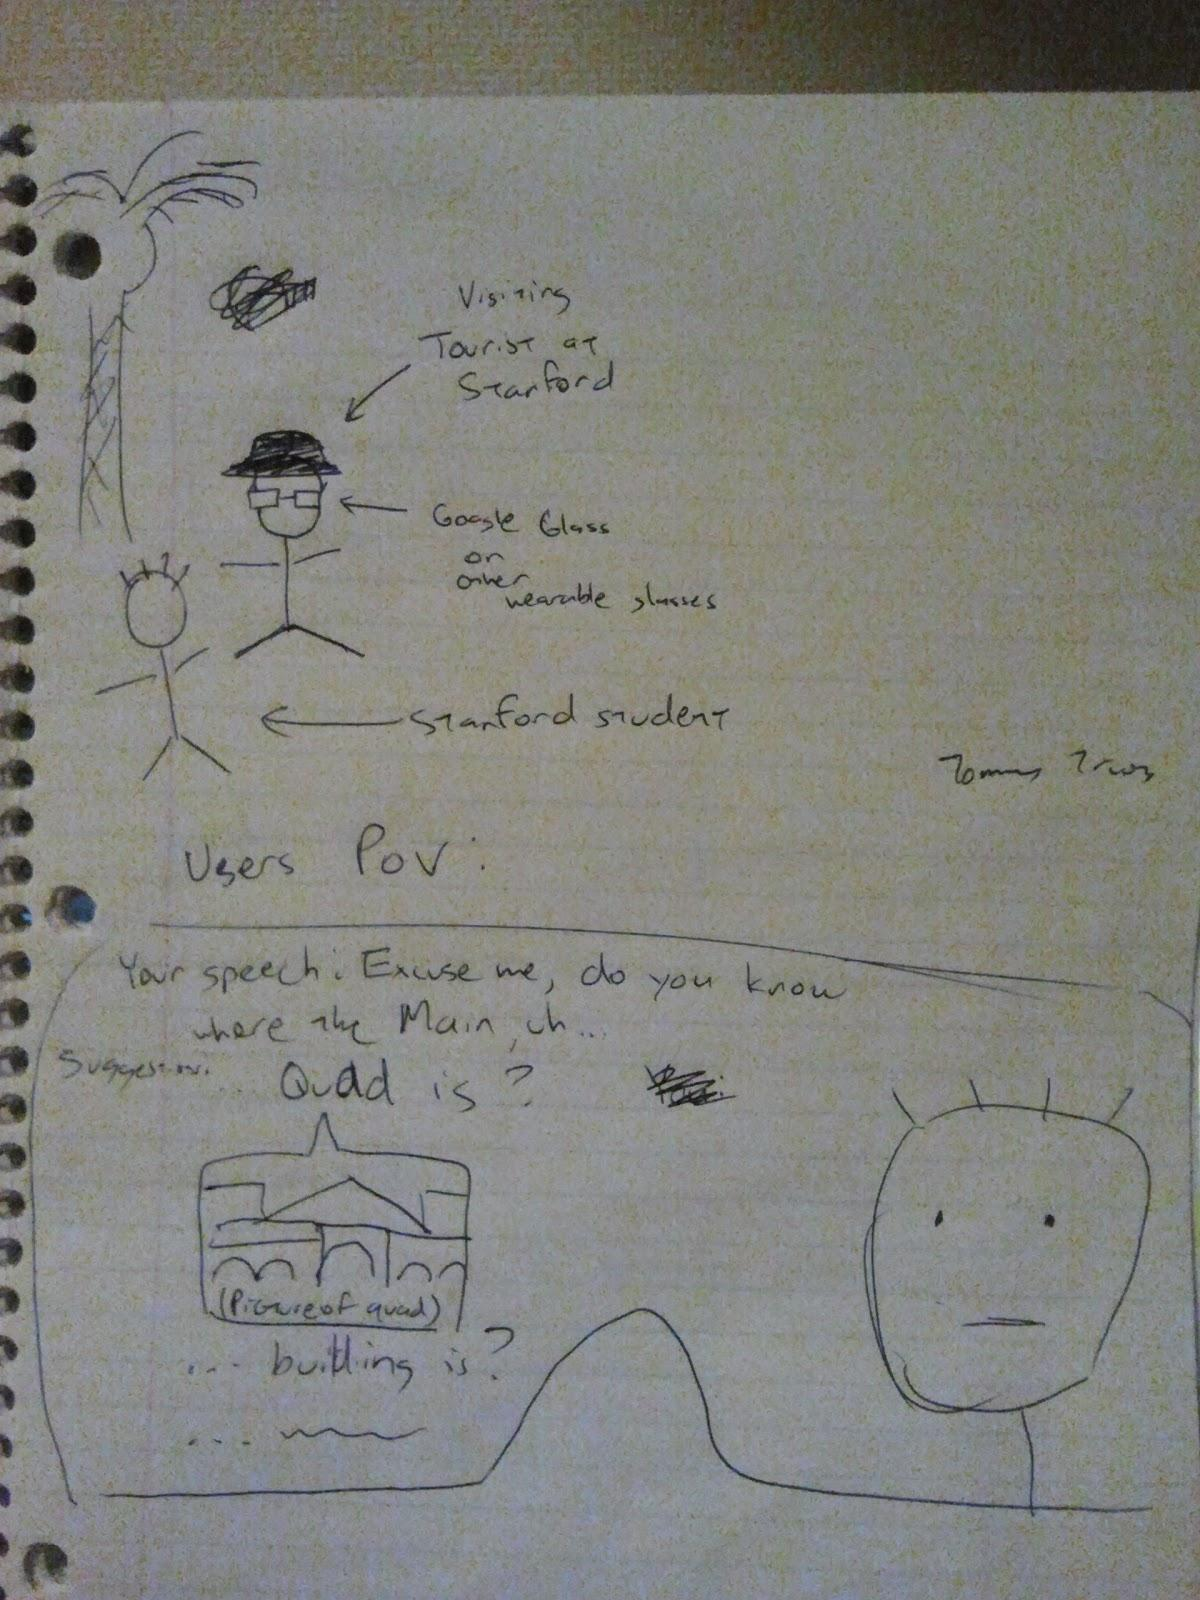 Visiting
Tourist at
Stanford
Google Glass
or
other
wearable glasses
Stanford student
Users Pov:
Your speech: Excuse me, do you know
where the Main, uh...
Suggestion:
... Quad is?
(Picture of quad)
... building is?
...